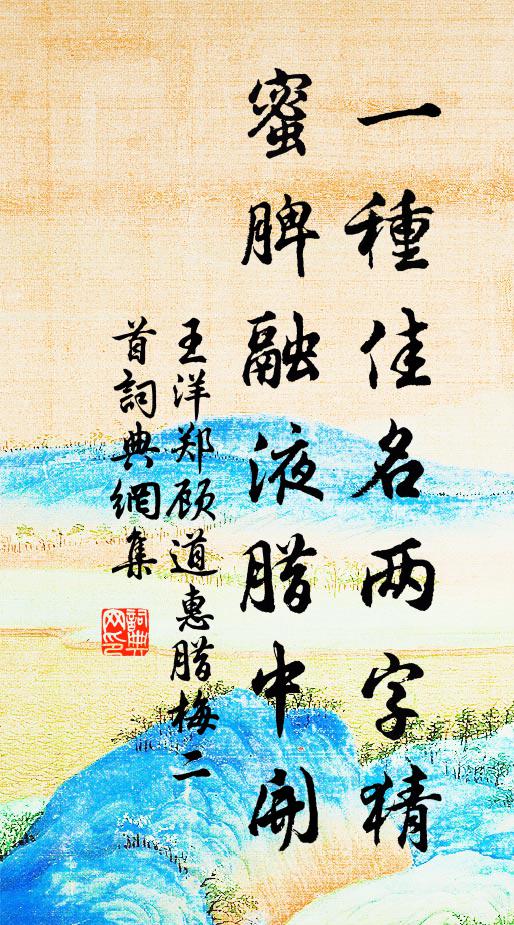 一種佳名两字猜
蜜脾融液腊中開
王洋郑顾道惠腊梅二
首詞典網集
詞典